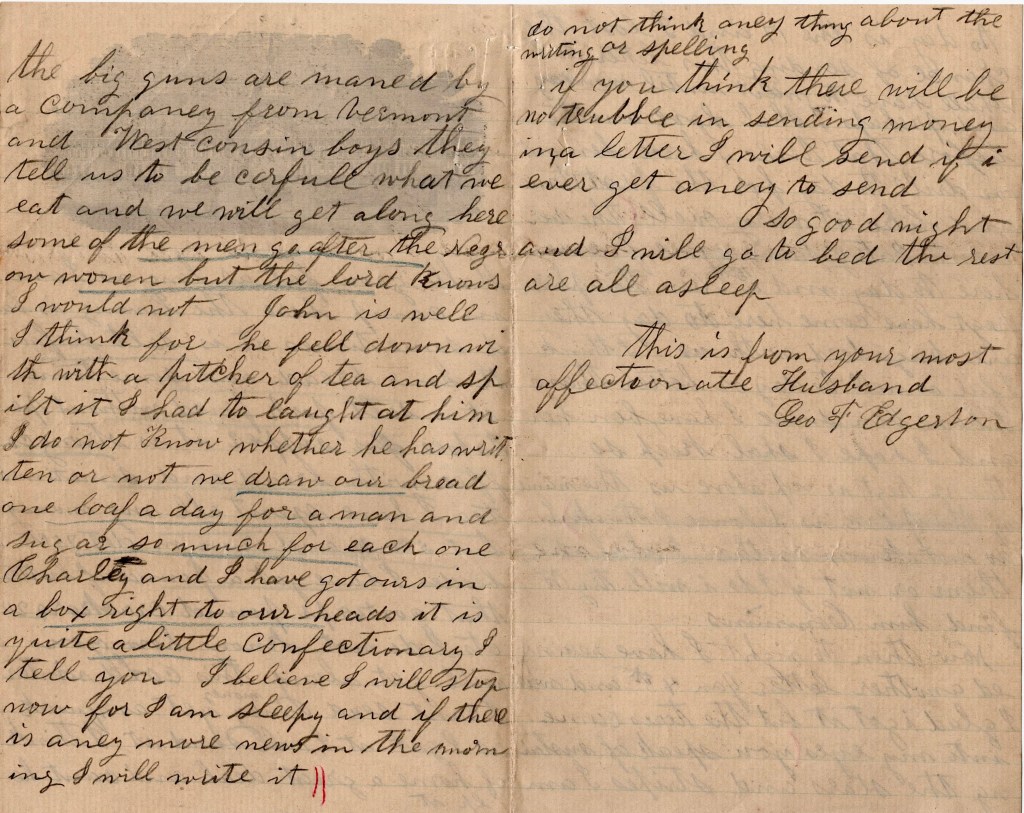 the big guns are maned by
a Companey from Vermont
and West consin boys they
tell us to be carfull what we
eat and we will get along here
some of the men go after the Negr
ow wonen but the lord Knows
I would not John is well
I think for he fell down wi
th with a pitcher of tea and sp
ilt it I had to laught at him
I do not Know whether he has writ
ten or not we draw our bread
one loaf a day for a man and
sugar so much for each one
Charley and I have got ours in
a box right to our heads it is
quite a little Confectionary I
tell you I believe I will stop
now for I am sleepy and if there
is aney more news in the morn
ing I will write it
do not think aney thing about the
writing or spelling
if you think there will be
no trubble in sending money
in a letter I will send if i
ever get aney to send
so good night
and I will go to bed the rest
are all asleep
this is from your most
affectoonate Husband
Geo F Edgerton